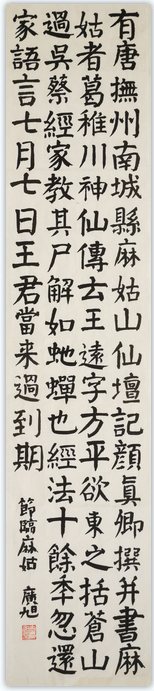 有唐撫州南城縣麻姑山仙壇記顏真卿撰并書麻
姑者葛稚川神仙傳云王遠字方平欲東之括蒼山
過吳蔡經家教其尸解如虵蟬也經法十餘年忽還
家語言七月七日王君當來過到期
節臨麻姑 廣旭